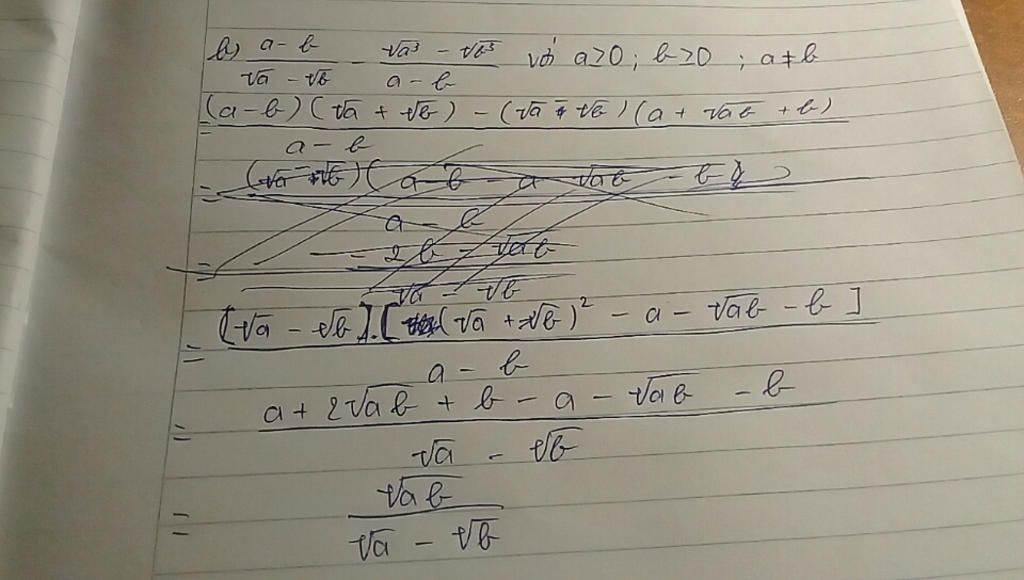 b) \frac{a-b}{\sqrt{a}-\sqrt{b}} - \frac{\sqrt{a^3}-\sqrt{b^3}}{a-b} với a≥0; b≥0; a≠b
= \frac{(a-b)(\sqrt{a}+\sqrt{b})-(\sqrt{a}-\sqrt{b})(a+\sqrt{ab}+b)}{a-b}
= \frac{[\sqrt{a}-\sqrt{b}].[(\sqrt{a}+\sqrt{b})^2-a-\sqrt{ab}-b]}{a-b}
= \frac{a+2\sqrt{ab}+b-a-\sqrt{ab}-b}{\sqrt{a}-\sqrt{b}}
= \frac{\sqrt{ab}}{\sqrt{a}-\sqrt{b}}